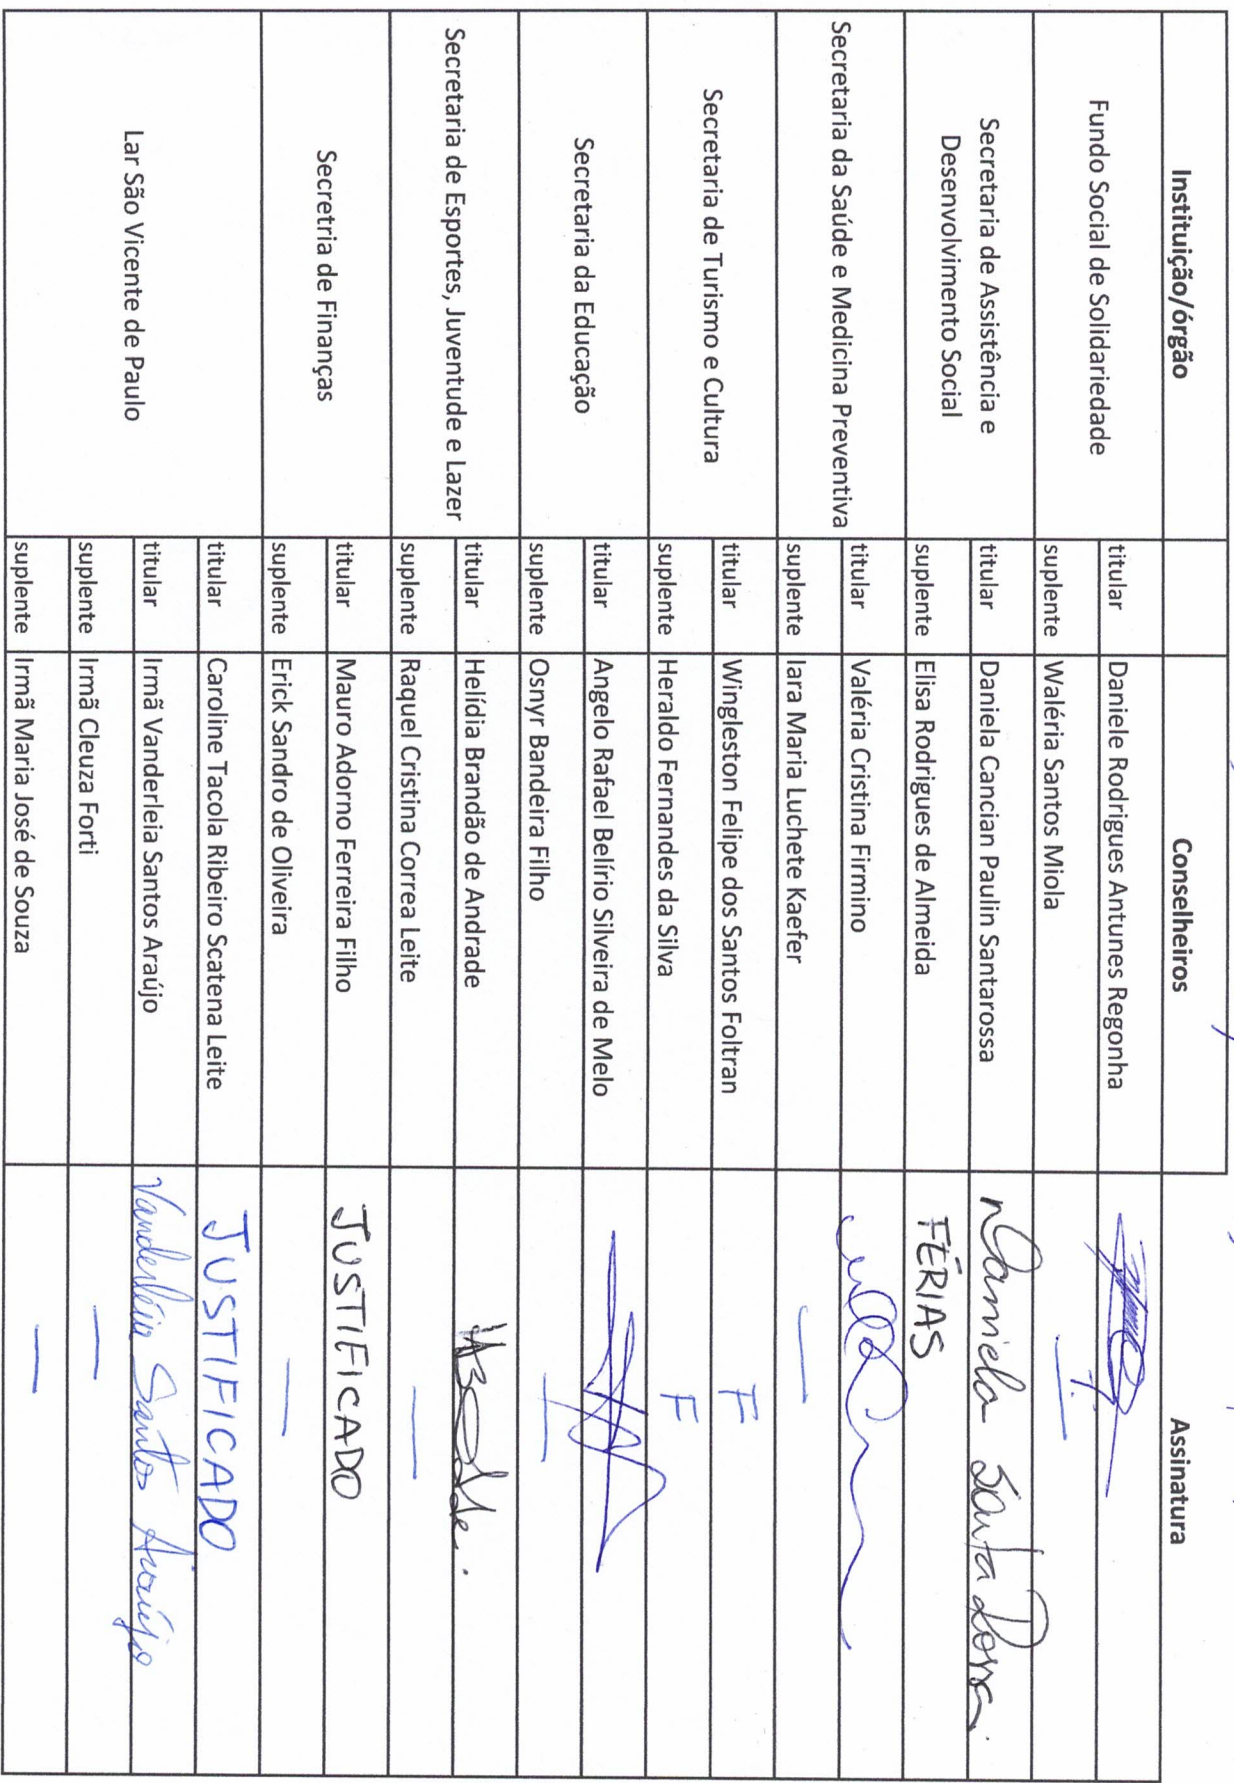 Instituição/órgão Conselheiros Assinatura
Fundo Social de Solidariedade
titular Daniele Rodrigues Antunes Regonha
suplente Waléria Santos Miola —
Secretaria de Assistência e
Desenvolvimento Social
titular Daniela Cancian Paulin Santarossa Daniela Santa Rossa
suplente Elisa Rodrigues de Almeida FÉRIAS
Secretaria da Saúde e Medicina Preventiva
titular Valéria Cristina Firmino
suplente Iara Maria Luchete Kaefer —
Secretaria de Turismo e Cultura
titular Wingleston Felipe dos Santos Foltran F
suplente Heraldo Fernandes da Silva F
Secretaria da Educação
titular Angelo Rafael Belírio Silveira de Melo
suplente Osnyr Bandeira Filho —
Secretaria de Esportes, Juventude e Lazer
titular Helídia Brandão de Andrade
suplente Raquel Cristina Correa Leite —
Secretria de Finanças
titular Mauro Adorno Ferreira Filho JUSTIFICADO
suplente Erick Sandro de Oliveira —
Lar São Vicente de Paulo
titular Caroline Tacola Ribeiro Scatena Leite JUSTIFICADO
titular Irmã Vanderleia Santos Araújo Vanderléia Santos Araújo
suplente Irmã Cleuza Forti —
suplente Irmã Maria José de Souza —